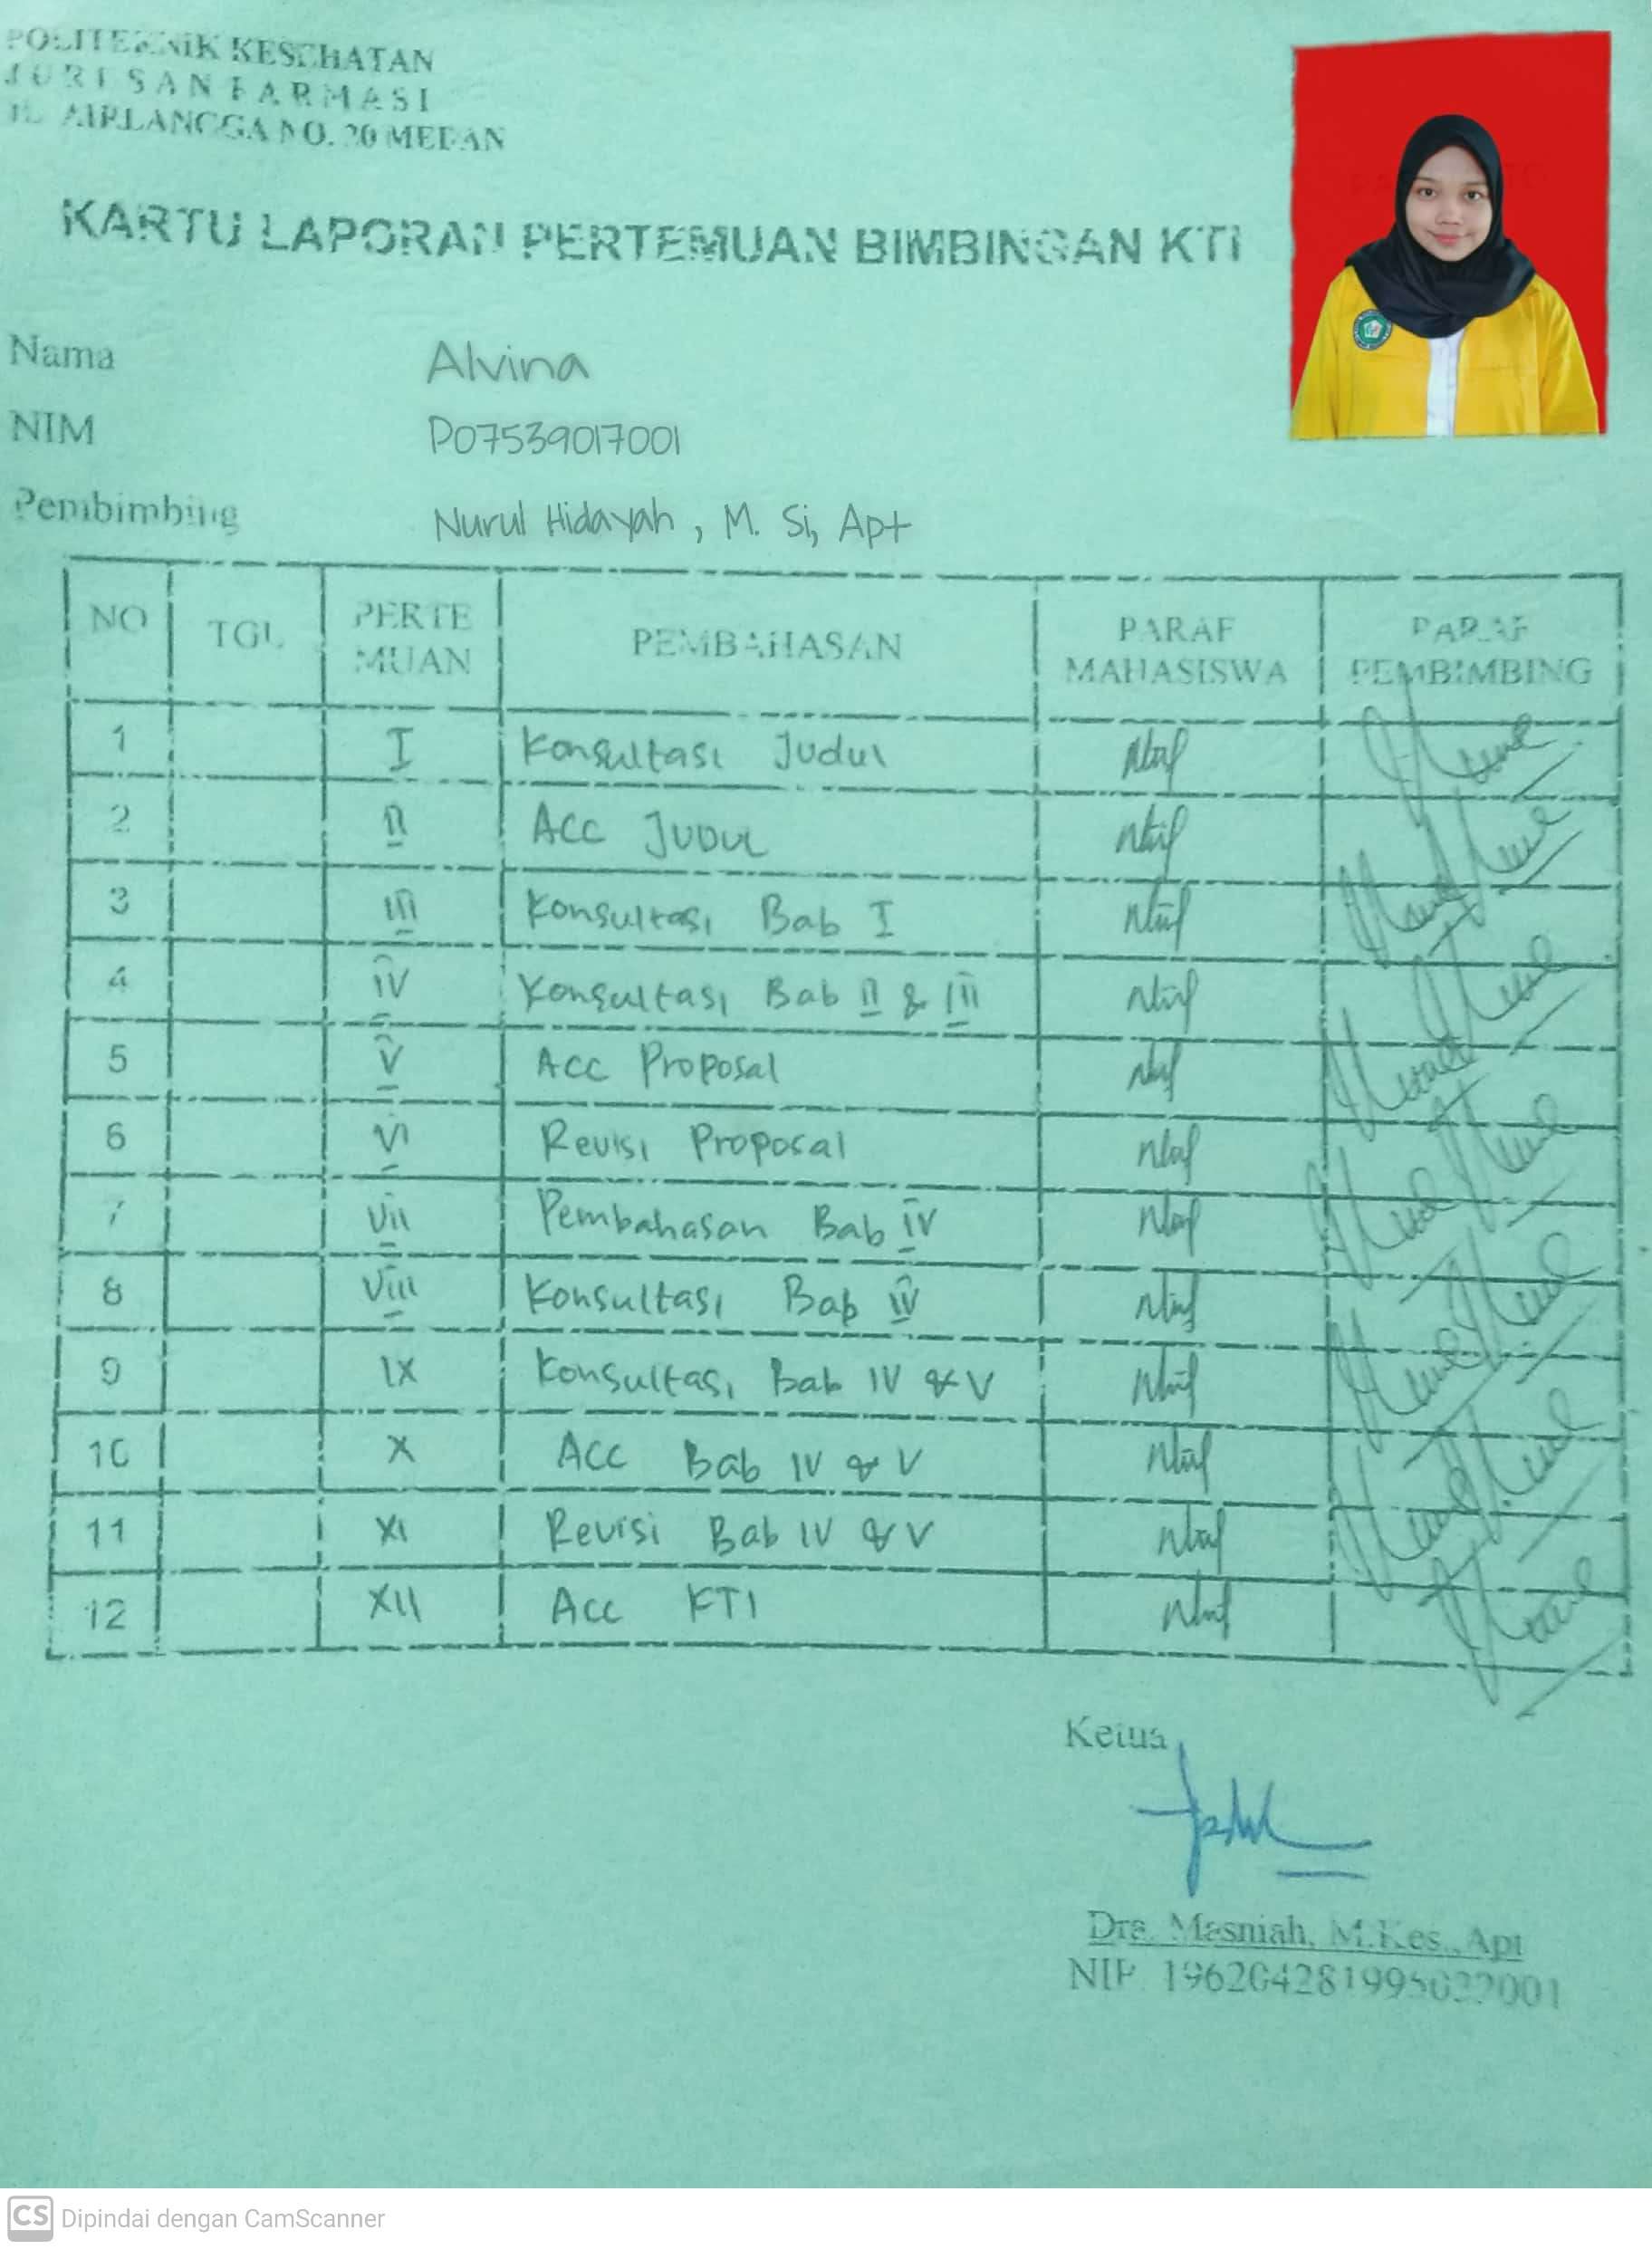 POLITEKNIK KESEHATAN
JURUSAN FARMASI
JL. AIRLANGGA NO. 20 MEDAN
KARTU LAPORAN PERTEMUAN BIMBINGAN KTI
Nama Alvina
NIM P07539017001
Pembimbing Nurul Hidayah, M. Si, Apt
NO TGL PERTE MUAN PEMBAHASAN PARAF MAHASISWA PARAF PEMBIMBING
1 I Konsultasi Judul
2 II ACC JUDUL
3 III Konsultasi Bab I
4 IV Konsultasi Bab II & III
5 V Acc Proposal
6 VI Revisi Proposal
7 VII Pembahasan Bab IV
8 VIII Konsultasi Bab IV
9 IX Konsultasi Bab IV & V
10 X Acc Bab IV & V
11 XI Revisi Bab IV & V
12 XII Acc KTI
Ketua
Dra. Masniah, M.Kes., Apt
NIP. 196204281995022001
CS Dipindai dengan CamScanner